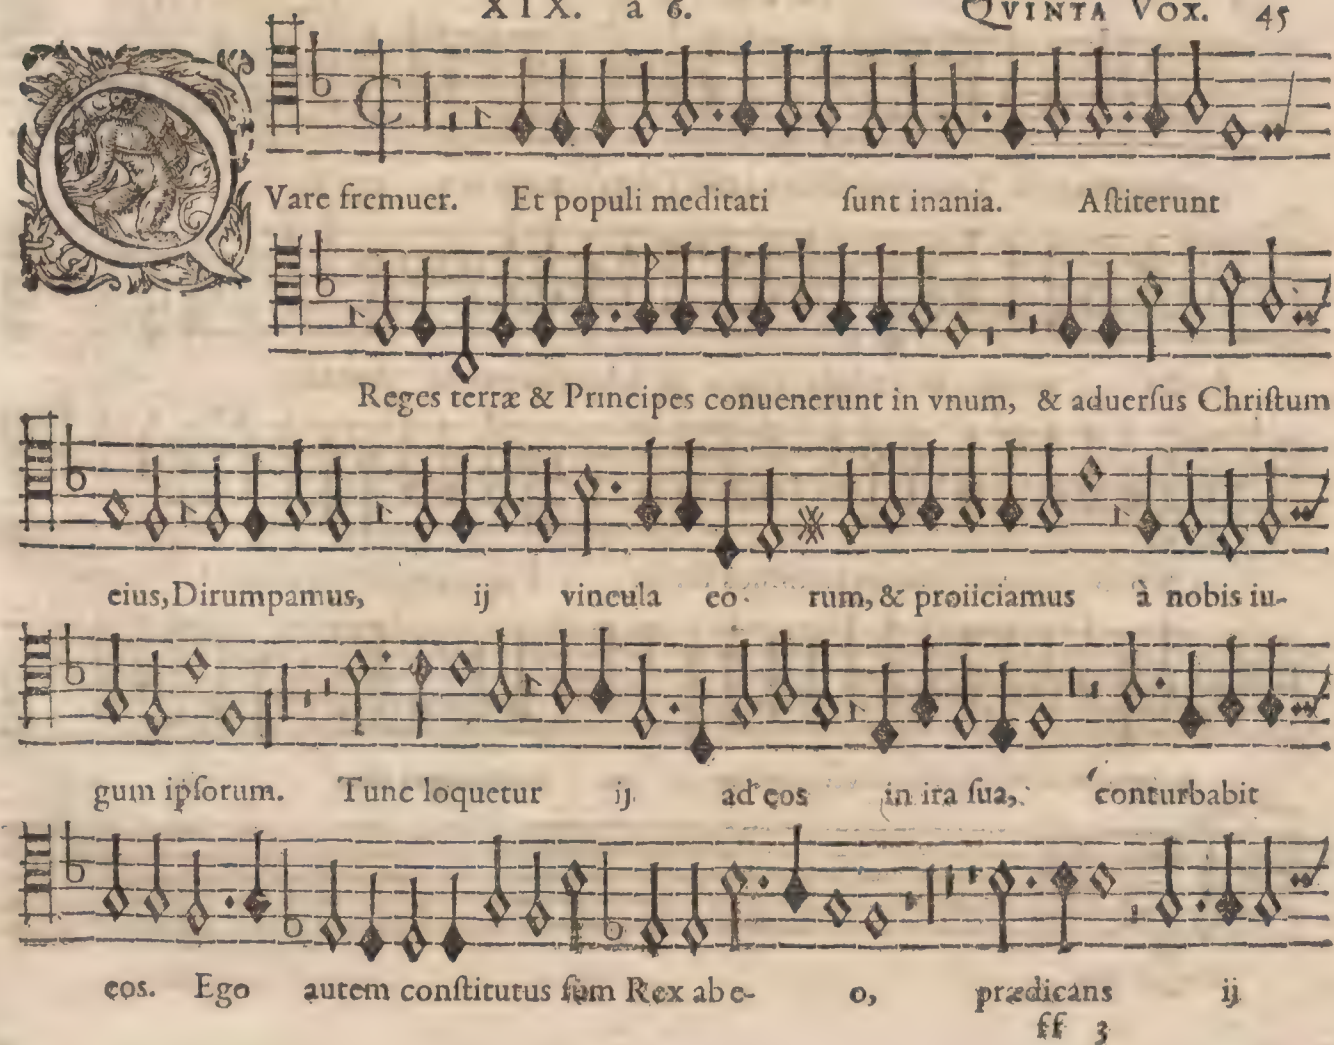 XIX. a 6. QVINTA VOX. 45
QVare fremuer. Et populi meditati ſunt inania. Aſtiterunt
Reges terræ & Principes conuenerunt in vnum, & aduerſus Chriſtum
eius, Dirumpamus, ij vincula eo. rum, & proiiciamus à nobis iu-
gum ipſorum. Tunc loquetur ij. ad eos in ira ſua, conturbabit
eos. Ego autem conſtitutus ſum Rex ab e- o, prædicans ij
ff 3